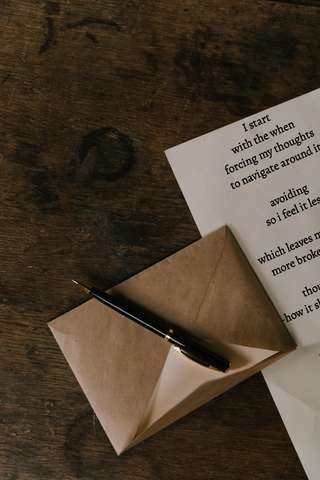 I start
with the when
forcing my thoughts
to navigate around
avoiding
so i feel it
which leaves
more
-how it